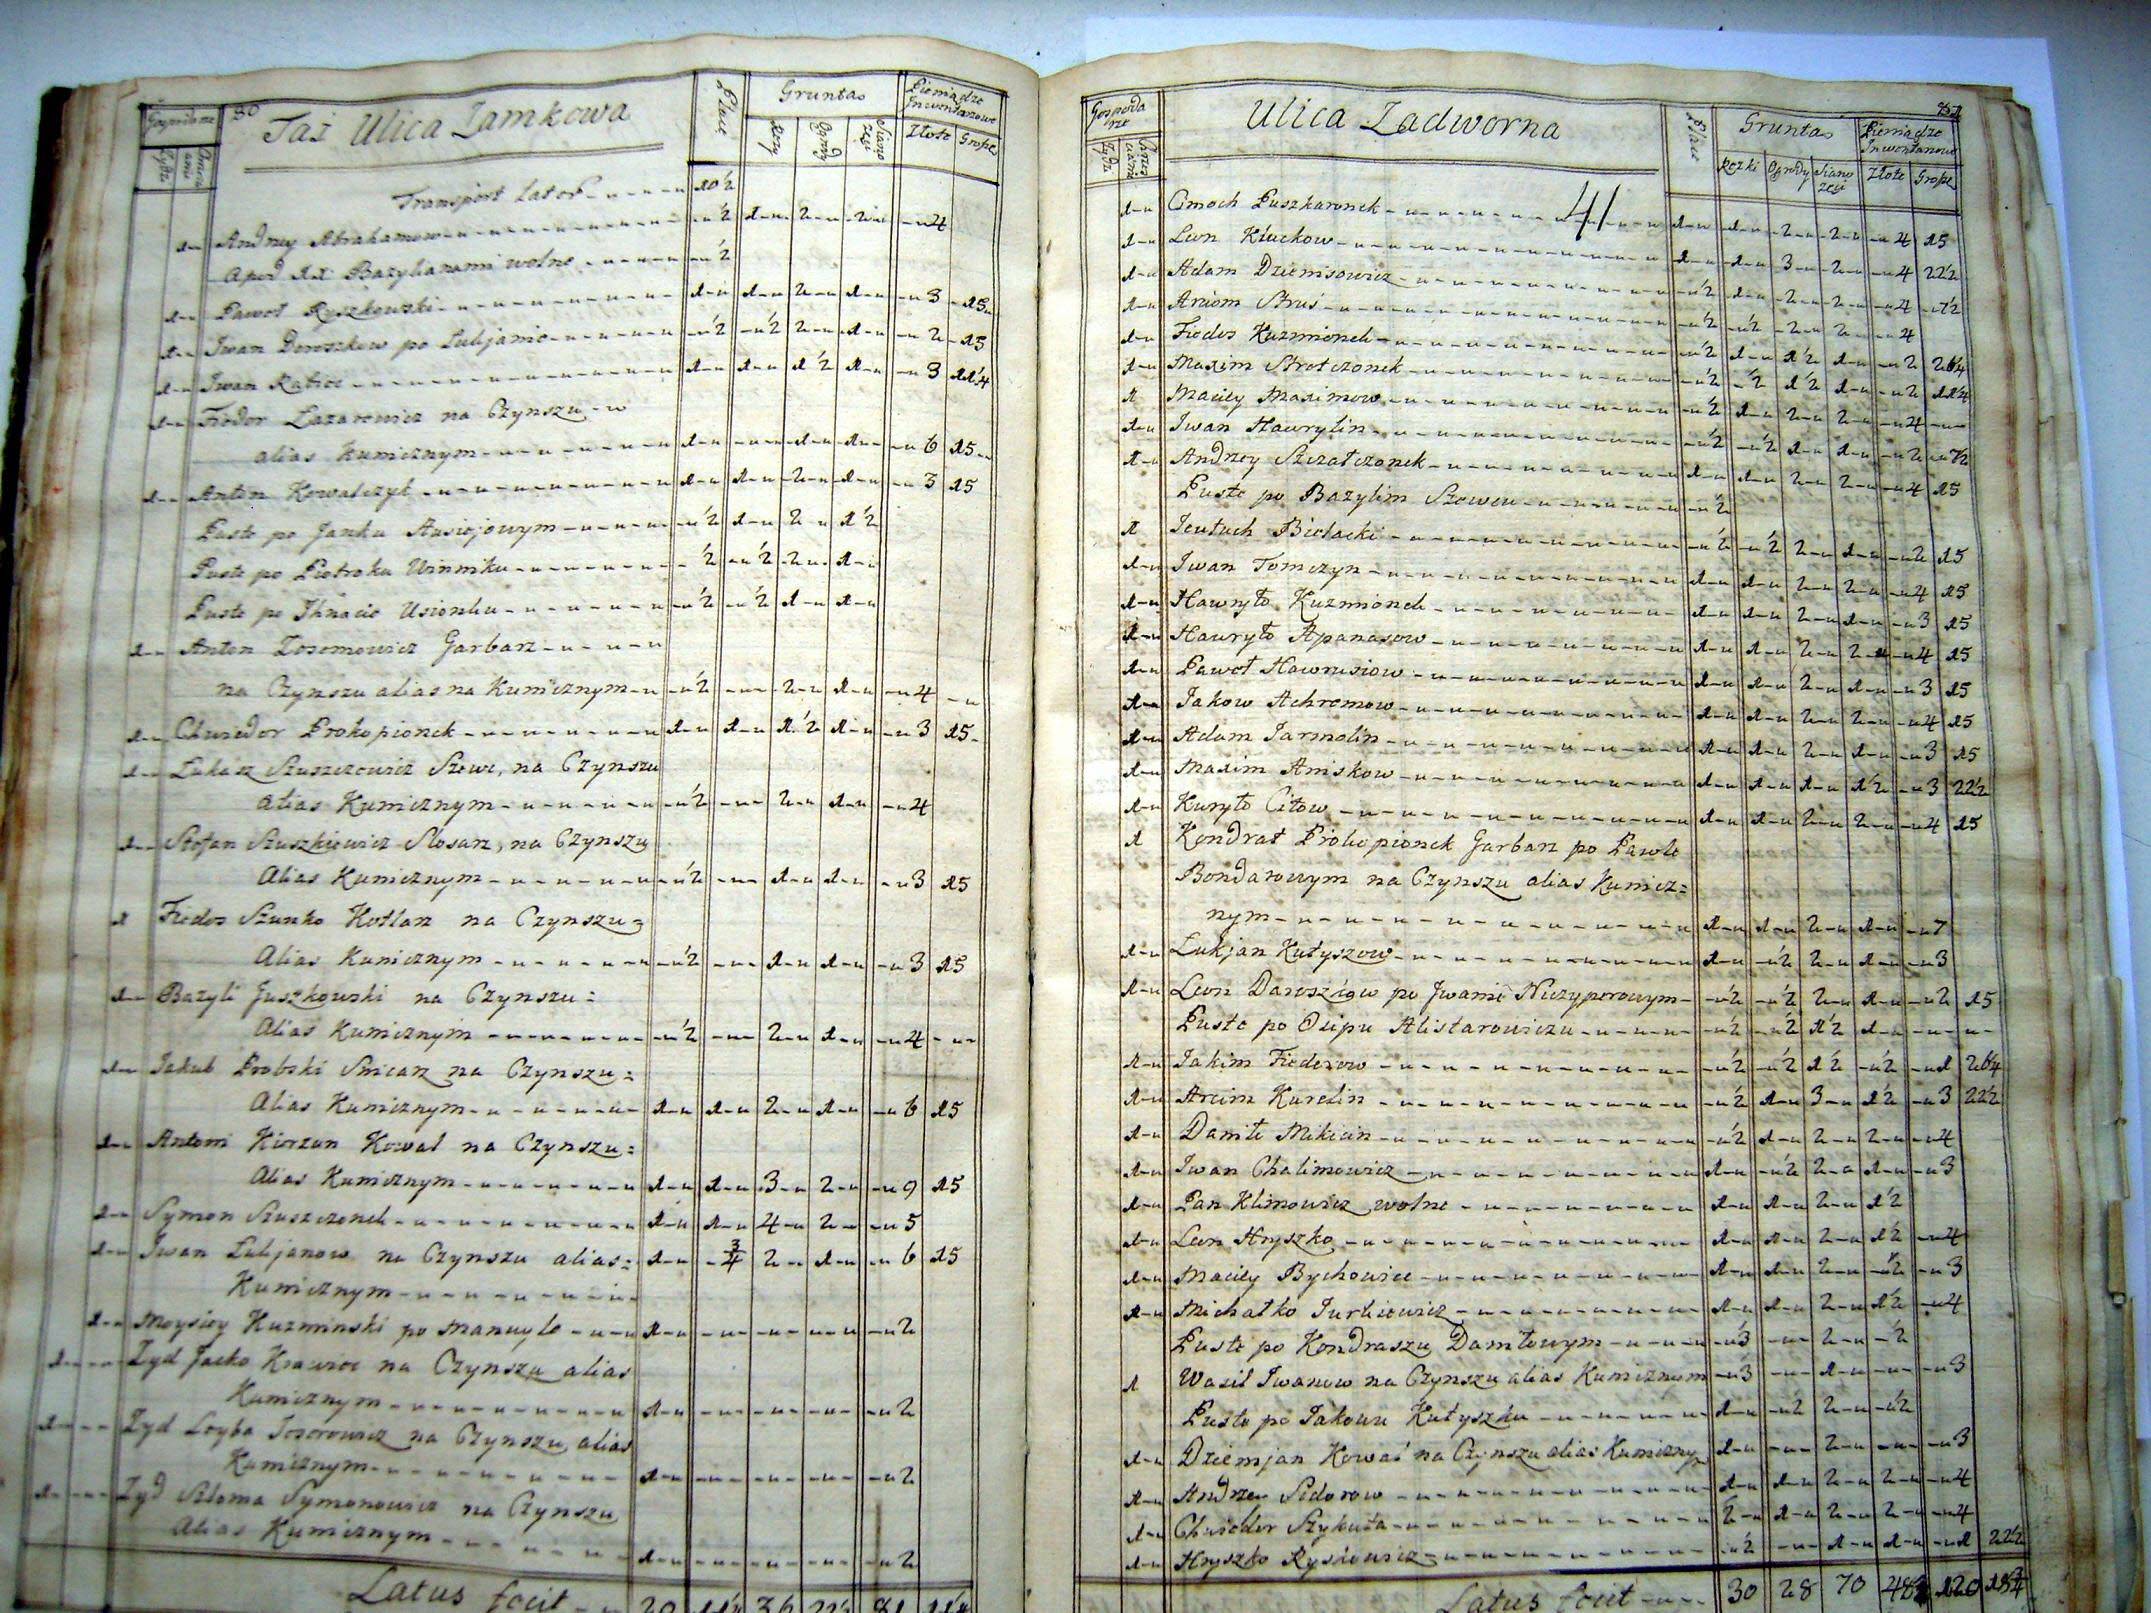 Gospodarze
80
Taż Ulica Zamkowa
Place
Gruntas
Pieniądze Inwentarzowe
Złote Grosze
Transport Lateris 10½
1 Andrzey Abrahamow ½ 1 2 2 4
½
1 Paweł Ryszkowski 1 1 2 1 3 15
1 Iwan Doroszkow po Lukjanie ½ ½ 2 1 2 15
1 Iwan 1 1 1½ 1 3 11¼
1 Fiedor Lazarowicz na Czynszu
alias Kunicznym 1 1 1 6 15
1 Anton Kowalczyk 1 1 2 1 3 15
Puste po Janku Ausiejowym ½ 1 2 1½
Puste po Piotroku Winniku ½ ½ 2 1
Puste po Ihnacie Usionku ½ ½ 1 1
1 Anton Garbarz
na Czynszu alias na Kunicznym ½ 2 1 4
1 Chwiedor Prokopionek 1 1 1½ 1 3 15
1 Łukasz Szuszczewicz Szewc, na Czynszu
alias Kunicznym ½ 2 1 4
1 Stefan Szuszkiewicz Slosarz, na Czynszu
Alias Kunicznym ½ 1 1 3 15
1 Fiedor Szunko Kotlarz na Czynszu
Alias Kunicznym ½ 1 1 3 15
1 Bazyli Juszkowski na Czynszu
Alias Kunicznym ½ 2 1 4
1 Jakub Probski Snicarz na Czynszu
Alias Kunicznym 1 1 2 1 6 15
1 Antoni Kierzun Kowal na Czynszu
Alias Kunicznym 1 1 3 2 9 15
1 Symon Szuszczonek 1 1 4 2 5
1 Iwan Lukjanow na Czynszu alias 1 3/4 2 1 6 15
Kunicznym
1 Moysiey Kuzminski po Manuyle 1 2
1 Zyd Jacko Krawiec na Czynszu alias
Kunicznym 1 2
1 Zyd Leyba Josorowicz na Czynszu alias
Kunicznym 1 2
1 Zyd Szloma Symonowicz na Czynszu
Alias Kunicznym 1 2
Latus facit
Gospodarze
Ulica Zadworna
Place
Gruntas
Pieniądze Inwentarzowe
Rezki Ogrody Sianozęci Złote Grosze
1 Omoch Puszkaronek 41 1 1 2 2 4 15
1 Leon Kluckow 1 1 3 2 4 22½
1 Adam Dziemisowicz ½ 1 2 2 4 7½
1 Arciom Struś ½ ½ 2 2 4
1 Fiedor Kuzmionek ½ 1 1½ 1 2 26¼
1 Maxim Strotczonek ½ ½ 1½ 1 2 11¼
1 Maciey Maximow ½ 1 2 2 4
1 Iwan Hawrylin ½ ½ 1 1 2 7½
1 Andrzey Szczatczonek 1 1 2 2 4 15
Puste po Bazylim Szewcu ½
1 Jeutuch Bielacki ½ ½ 2 1 2 15
1 Iwan Tomczyn 1 1 2 2 4 15
1 Hawryło Kuzmionek 1 1 2 1 3 15
1 Hawryło Apanasow 1 1 2 2 4 15
1 Paweł Hawrusiow 1 1 2 1 3 15
1 Jakow Achromow 1 1 2 2 4 15
1 Adam Jarmolin 1 1 2 1 3 15
1 Maxim Aniskow 1 1 1 1½ 3 22½
1 Kuryło Citow 1 1 2 2 4 15
1 Kondrat Prokopionek Garbarz po Pawle
Bondarowym na Czynszu alias Kunicz=
nym 1 1 2 1 7
1 Lukjan Kutyszow 1 ½ 2 1 3
1 Leon Daroszkow po Iwanie Niczyporowym ½ ½ 2 1 2 15
Puste po Osipu Alistarowiczu ½ ½ 1½ 1
1 Jakim Fiedorow ½ ½ 1½ ½ 1 26¼
1 Arcim Karelin ½ 1 3 1½ 3 22½
1 Daniło Mikicin ½ 1 2 2 4
1 Iwan Chalimowicz 1 ½ 2 1 3
1 Pan Klimowicz wolne 1 1 2 1½
1 Leon Hryszko 1 1 2 1½ 4
1 Maciey Bychowiec 1 1 2 ½ 3
1 Michałko Jurkiewicz 1 1 2 1½ 4
Puste po Kondraszu Daniłowym 3 2 ½
1 Wasil Iwanow na Czynszu alias Kunicznym 3 1 3
Puste po Jakowu Kutyszku 1 ½ 2 ½
1 Dziemjan Kowal na Czynszu alias Kuniczny 1 2 3
1 Andrzey Sidorow 1 1 2 2 4
1 Chwiedor Szykuła 2 1 2 2 4
1 Hryszko Rysiewicz ½ 1 1 1 22½
Latus facit 30 28 70 48 120